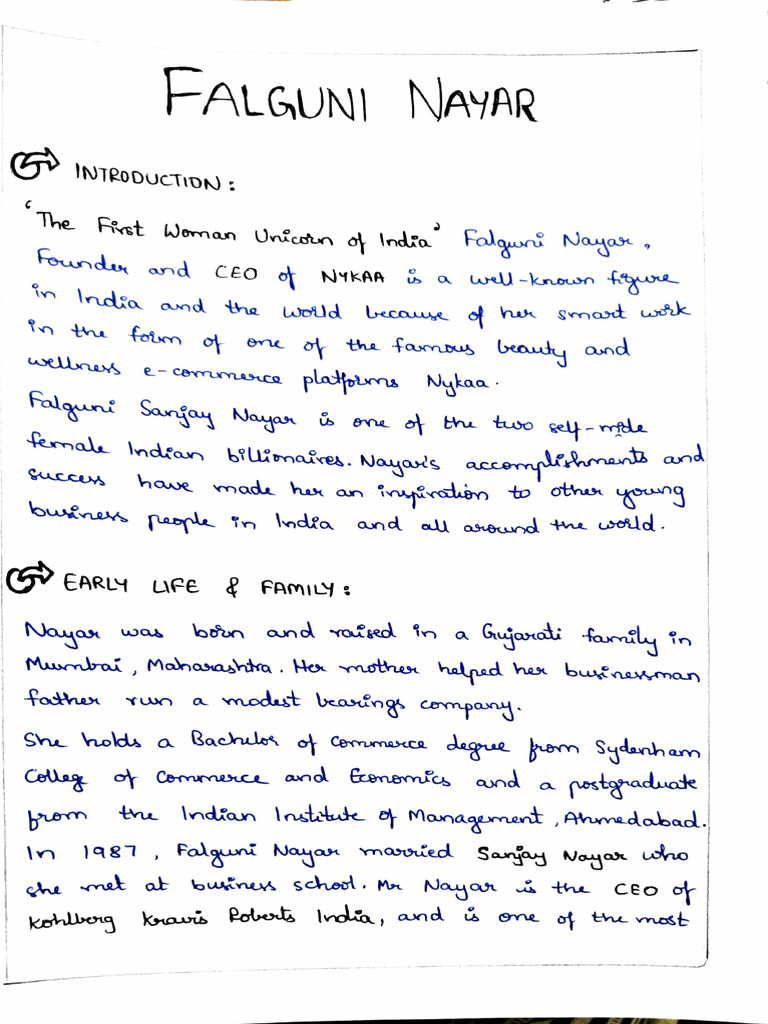 FALGUNI NAYAR
INTRODUCTION:
'The First Woman Unicorn of India' Falguni Nayar,
Founder and CEO of NYKAA is a well-known figure
in India and the world because of her smart work
in the form of one of the famous beauty and
wellness e-commerce platforms Nykaa.
Falguni Sanjay Nayar is one of the two self-made
female Indian billionaires. Nayar's accomplishments and
success have made her an inspiration to other young
business people in India and all around the world.
EARLY LIFE & FAMILY:
Nayar was born and raised in a Gujarati family in
Mumbai, Maharashtra. Her mother helped her businessman
father run a modest bearings company.
She holds a Bachelor of Commerce degree from Sydenham
College of Commerce and Economics and a postgraduate
from the Indian Institute of Management, Ahmedabad.
In 1987, Falguni Nayar married Sanjay Nayar who
she met at business school. Mr Nayar is the CEO of
Kohlberg Kravis Roberts India, and is one of the most